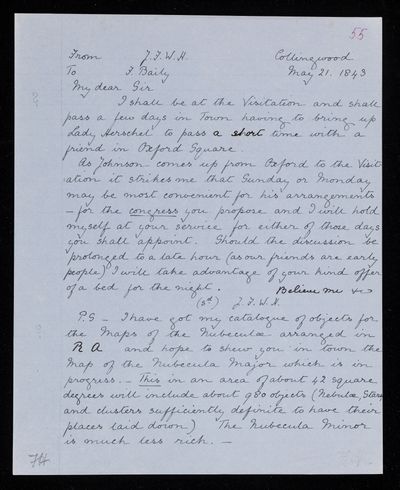 55
From J.F.W.H. Collingwood
To F. Baily May 21. 1843
My dear Sir
I shall be at the Visitation and shall
pass a few days in Town having to bring up
Lady Herschel to pass a short time with a
friend in Oxford Square.
As Johnson comes up from Oxford to the Visit-
ation it strikes me that Sunday or Monday
may be most convenient for his arrangements
– for the congress you propose and I will hold
myself at your service for either of those days
you shall appoint. Should the discussion be
prolonged to a late hour (as our friends are early
people) I will take advantage of your kind offer
of a bed for the night. Believe me &c
(sd) J.F.W.H.
P.S – I have got my catalogue of objects for
the Maps of the Nubeculæ arranged in
R A and hope to shew you in town the
Map of the Nubecula Major which is in
progress. – This in an area of about 42 square
degrees will include about 980 objects (Nebulæ, Stars,
and clusters sufficiently definite to have their
places laid down) The Nubecula Minor
is much less rich. –